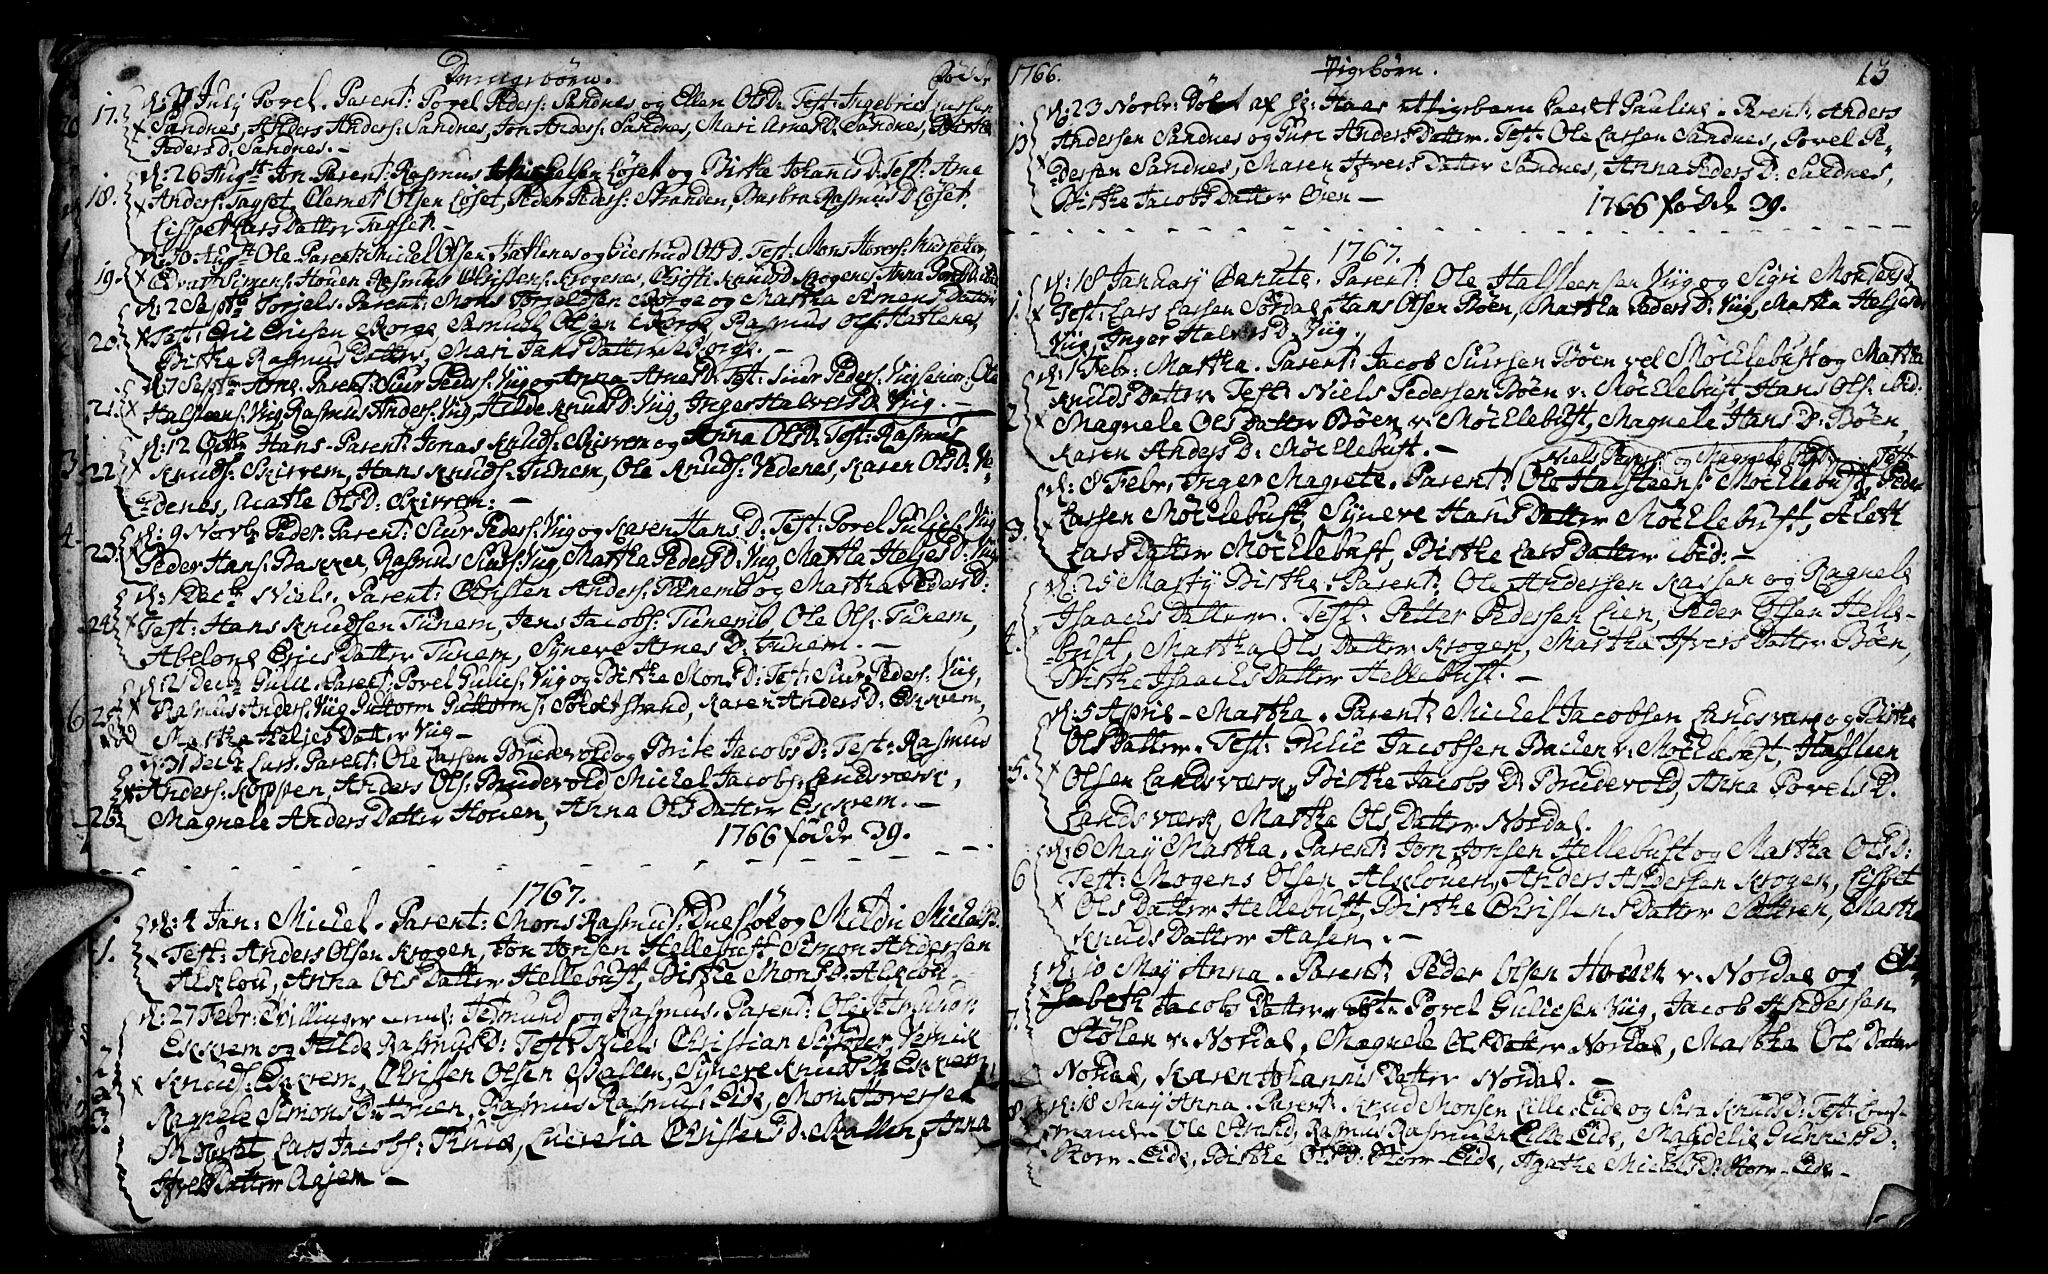 Drengebörn. Födde
17. d: July Povel. Parent: Povel Peders: Sandnes og Ellen OlsD. Test: Ingebrict
Sandnes, Anders Anders: Sandnes, Jon Anders: Sandnes, Mari ArnesD. Sandnes, Birthe
PedersD. Sandnes. –
18. d: 26 Augstj Jon Parent: Rasmus Michelsen Löset og Birthe JohanisD. Test: Arne
Anders: Tagset, Clemet Olsen Löset, Peder Peders: Stranden, Barbra RasmusD Löset.
Lisspet LarsDatter Tagset. –
19. Ole Parent: Michel Olsen Hatlenes og OlsD. Test: Mons
Simens: Houen Rasmus Christens: Krogenes, Christi KnudsD Krogenes, Anna
20. d: 2 Septbr Torjels. Parent: Mons Torjeldsen Skorge og Martha SimensDatter
Test: Eric Ericsen Skorge Samuel Olsen Skorge Rasmus Ols: Hatlenes
Birthe RasmusDatter, Mari JansDatter Skorge. –
21. d: 7 Septbr Arne. Parent: Siur Peders: Viig og Anna ArnesD: Test: Siur Peders: Viig senior, Ole
Halsteens: Viig Rasmus Anders: Viig, Helde KnudsD: Viig, Inger HalversD. Viig. –
22. d: 12 Octb Hans. Parent: Jonas Knuds: Skirrem og Anna OlsD. Test: Rasmus
Knuds: Skirrem, Hans Knuds: Tunem, Ole Knuds: Vedenes, Karen OlsD: Ve-
denes, OlsD: Skirrem. –
23. d: 9 Novbr Peder. Parent: Siur Peders: Viig og Karen HansD: Test: Povel Gulics: Viig
Peder Hans: Bakken, Rasmus Siurs: Viig, Martha PedersD: Viig, Martha HeljesD: Viig
24. d: 1 Decbr Niels. Parent: Christen Anders: Tunemb og Martha PedersD:
Test: Hans Knudsen Tunem, Jens Jacobs: Tunemb Ole Ols: Tunem,
Abelone EricsDatter Tunem, Syneve ArnesD: Tunem. –
25. d: 21 Decbr Gulic. Parent: Povel Gulics: Viig og Birthe MonsD: Test: Siur Peders: Viig,
Rasmus Anders: Viig Guttorm Guttorms: strand, Karen AndersD: Ekrem,
Martha HeljesDatter Viig –
26. d: 31 Decbr Lars. Parent: Ole Larsen Brudevold og Brite JacobsD: Test: Rasmus
Anders: Koppen, Anders Ols: Brudevold, Michel Jacobs: Landsværk,
Magnele AndersDatter Houen, Anna OlsDatter Ekrem. –
1766 födde 39.
1767.
1. d: 4 Jan: Michel. Parent: Mons Rasmus: og Mildri MichelsD.
Test: Anders Olsen Krogen, Jon Jonsen Hellebust Simon Andersen
Alsklou, Anna OlsDatter Hellebust, Birthe MonsD. Alsklou –
2. d: 27 Febr: Tvillinger nml: Tormund og Rasmus. Parent: Ole
3. Ekrem og Hilde RasmusD: Test: Niels Christian Schröder,
Knuds: Ekrem, Christen Olsen Skallen, Syneve KnudsD: Ekrem
Ragnele SimonsD: Houen, Rasmus Rasmus: Eide, Mons Iversen
Lars Jacobs: Lucretia ChristensD: Skallen, Anna
IversDatter Aasem –

1766. Pigebörn. 13
13 d: 23 Novbr: af Hr: Haas et Pigebarn kaldet Pauline. Parent: Anders
Andersen Sandnes og Guri AndersDatter. Test: Ole Larsen Sandnes, Povel Pe-
dersen Sandnes, Maren IversDatter Sandnes, Anna PedersD. Sandnes,
Birthe JacobsDatter Öien –
1766 födde 39.
1767.
1. d: 18 January Parent: Ole Halsteensen Viig og Sigri MonsesD.
Test: Lars Larsen Nordal, Hans Olsen Böen, Martha PedersD: Viig, Martha HeljesD.
Viig, Inger HalversD. Viig. –
2 d: 1 Febr: Martha. Parent: Jacob Siursen Böen vel Möcklebust og Martha
KnudsDatter Test: Niels Pedersen Böen v: Möcklebust, Hans Ols: ibid.
Magnele OlsDatter Böen v: Möcklebust, Magnele HansD: Böen,
Karen AndersD: Möcklebust. –
Niels Peders: og Magnele OlsD. Test:
3. d: 8 Febr: Inger Magrete. Parent: Ole Halsteens: Möcklebust, Peder
Larsen Möcklebust, Syneve HansDatter Möcklebust, Alet
LarsDatter Möcklebust, Birthe LarsDatter ibid: –
4. d: 25 Martij Birthe. Parent: Ole Andersen Kassen og Ragnele
IsaachsDatter. Test: Petter Pedersen Lien, Peder Olsen Helle-
bust, Martha OlsDatter Krogen, Martha IversDatter Böen,
Birthe IsaachsDatter Hellebust. –
5. d: 5 April – Martha. Parent: Michel Jacobsen Landsværk og Birthe
OlsDatter. Test: Gulic Jacobsen Bachen v: Möcklebust, Halsteen
Olsen Landsværk, Birthe JacobsD: Brudevold, Anna PovelsD.
Landsværk, Martha OlsDatter Nordal.
6 d: 6 May Martha. Parent: Jon Jonsen Hellebust og Martha OlsD:
Test: Mogens Olsen Alsklouen, Anders Andersen Krogen, Lisbet
OlsDatter Hellebust, Birthe ChristensDatter Sætren, Martha
KnudsDatter Aasen. –
7. d: 10 May Anna. Parent: Peder Olsen Houch v: Nordal og Eli-
sabeth JacobsDatter Test: Povel Gulicsen Viig, Jacob Andersen
Stölen v: Nordal, Magnele OlsDatter Nordal, Martha OlsDatter
Nordal, Karen JohannisDatter Nordal. –
8. d: 18 May Anna. Parent: Knud Monsen Lille-Eide og Sira KnudsD: Test:
Ole Strand, Rasmus Rasmusen Lille Eide, Magdelie GunnersD:
Stor-Eide, Birthe OlsD: Stor-Eide, Agathe MichelsD: Stor-Eide –